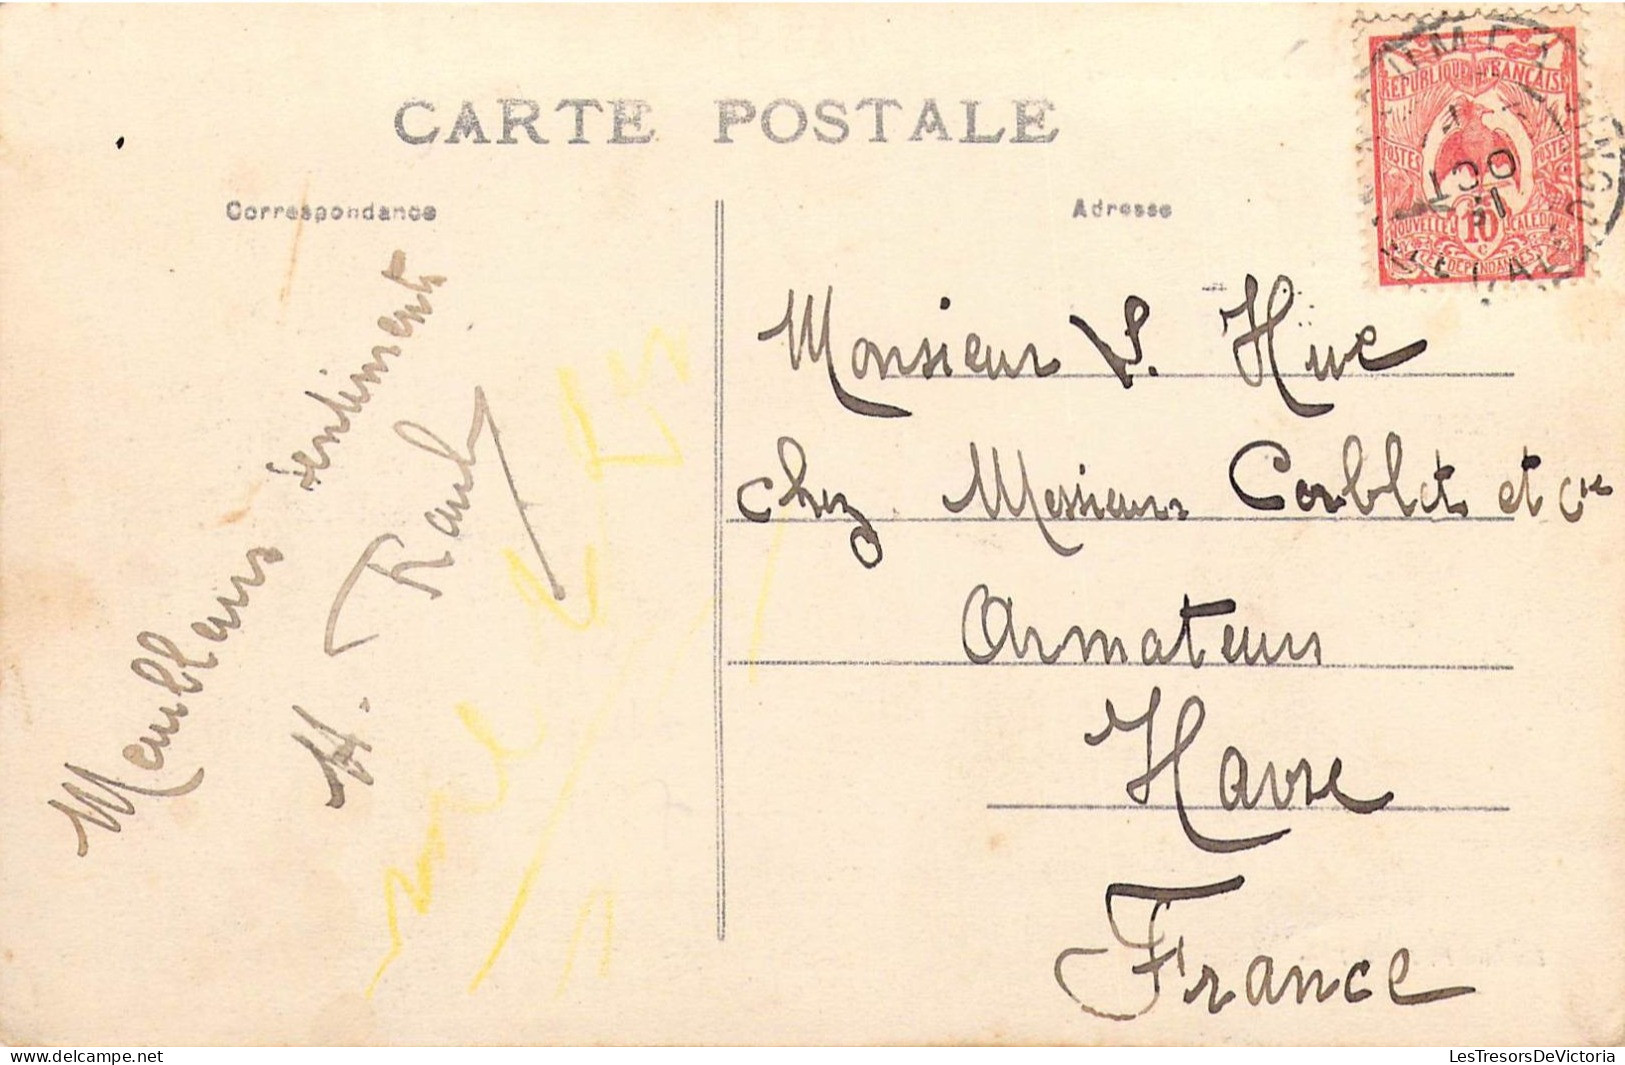 CARTE POSTALE
Correspondance
Adresse
RÉPUBLIQUE FRANÇAISE
POSTES
POSTES
OCT
NOUVELLE
10
c
CALEDONIE
ET DEPENDANCES
Meilleurs sentiments
H. Raul
Monsieur L. Hue
chez Messieurs Corblet et Cie
Armateurs
Havre
France
LesTresorsDeVictoria